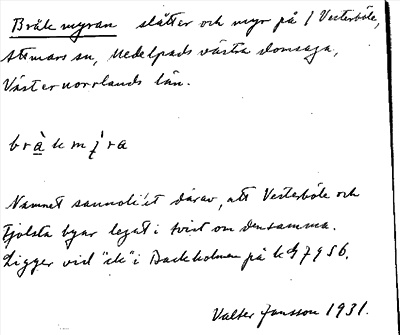 Bråkmyran slåtter och myr på / Västerböle,
Attmars sn, Medelpads västra domsaga,
Västernorrlands län.
bràkmy̆ra
Namnet sannolikt därav, att Västerböle och
Fjolsta byar legat i tvist om densamma.
Ligger vid "ck" i Backholmen på k G 7956.
Valter Jansson 1931.